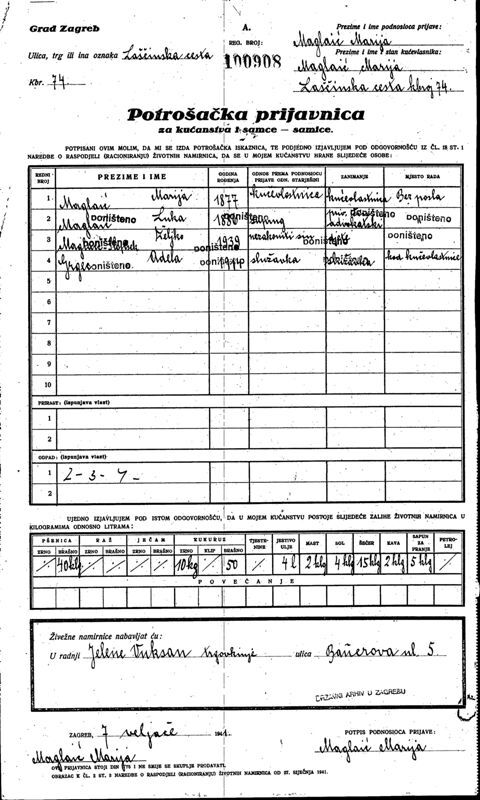 Grad Zagreb
A.
REG. BROJ:
100908
Prezime i ime podnosioca prijave:
Maglaić Marija
Ulica, trg ili ina oznaka Laščinska cesta
Prezime i ime i stan kućevlasnika:
Maglaić Marija
Kbr. 74
Laščinska cesta kbroj 74.
Potrošačka prijavnica
za kućanstva i samce — samice.
POTPISANI OVIM MOLIM, DA MI SE IZDA POTROŠAČKA ISKAZNICA, TE PODJEDNO IZJAVLJUJEM POD ODGOVORNOŠĆU IZ ČL. 18 ST. 1
NAREDBE O RASPODJELI (RACIONIRANJU) ŽIVOTNIH NAMIRNICA, DA SE U MOJEM KUĆANSTVU HRANE SLIJEDEĆE OSOBE:
REDNI BROJ PREZIME I IME GODINA ROĐENJA ODNOS PREMA PODNOSIOCU PRIJAVE ODN. STARJEŠINI ZANIMANJE MJESTO RADA
1 Maglaić Marija 1877 kućevlasnica kućevlasnica Bez posla
2 Maglaić Luka poništeno poništeno poništeno poništeno
3 Željko poništeno 1939 poništeno poništeno
4 Adela poništeno poništeno služavka kod kućevlasnice
5
6
7
8
9
10
PRIRAST: (ispunjava vlast)
1
2
OTPAD: (ispunjava vlast)
1 2-3-4-
2
UJEDNO IZJAVLJUJEM POD ISTOM ODGOVORNOŠĆU, DA U MOJEM KUĆANSTVU POSTOJE SLIJEDEĆE ZALIHE ŽIVOTNIH NAMIRNICA U
KILOGRAMIMA ODNOSNO LITRAMA:
PŠENICA RAŽ JEČAM KUKURUZ TJESTENINE JESTIVO ULJE MAST SOL ŠEĆER KAVA SAPUN ZA PRANJE PETROLEJ
ZRNO BRAŠNO ZRNO BRAŠNO ZRNO BRAŠNO ZRNO KLIP BRAŠNO
40 klg 10 kg 50 4 l 2 klg 4 klg 15 klg 2 klg 5 klg
POVEĆANJE
Živežne namirnice nabavljat ću:
U radnji Jelene Vuksan trgovkinje ulica Bauerova ul. 5.
DRŽAVNI ARHIV U ZAGREBU
ZAGREB, 7 veljače 1941.
POTPIS PODNOSIOCA PRIJAVE:
Maglaić Marija
Maglaić Marija
OVA PRIJAVNICA STOJI DIN 0.75 I NE SMIJE SE SKUPLJE PRODAVATI.
OBRAZAC K ČL. 2 ST. 2 NAREDBE O RASPODJELI (RACIONIRANJU) ŽIVOTNIH NAMIRNICA OD ST. SIJEČNJA 1941.